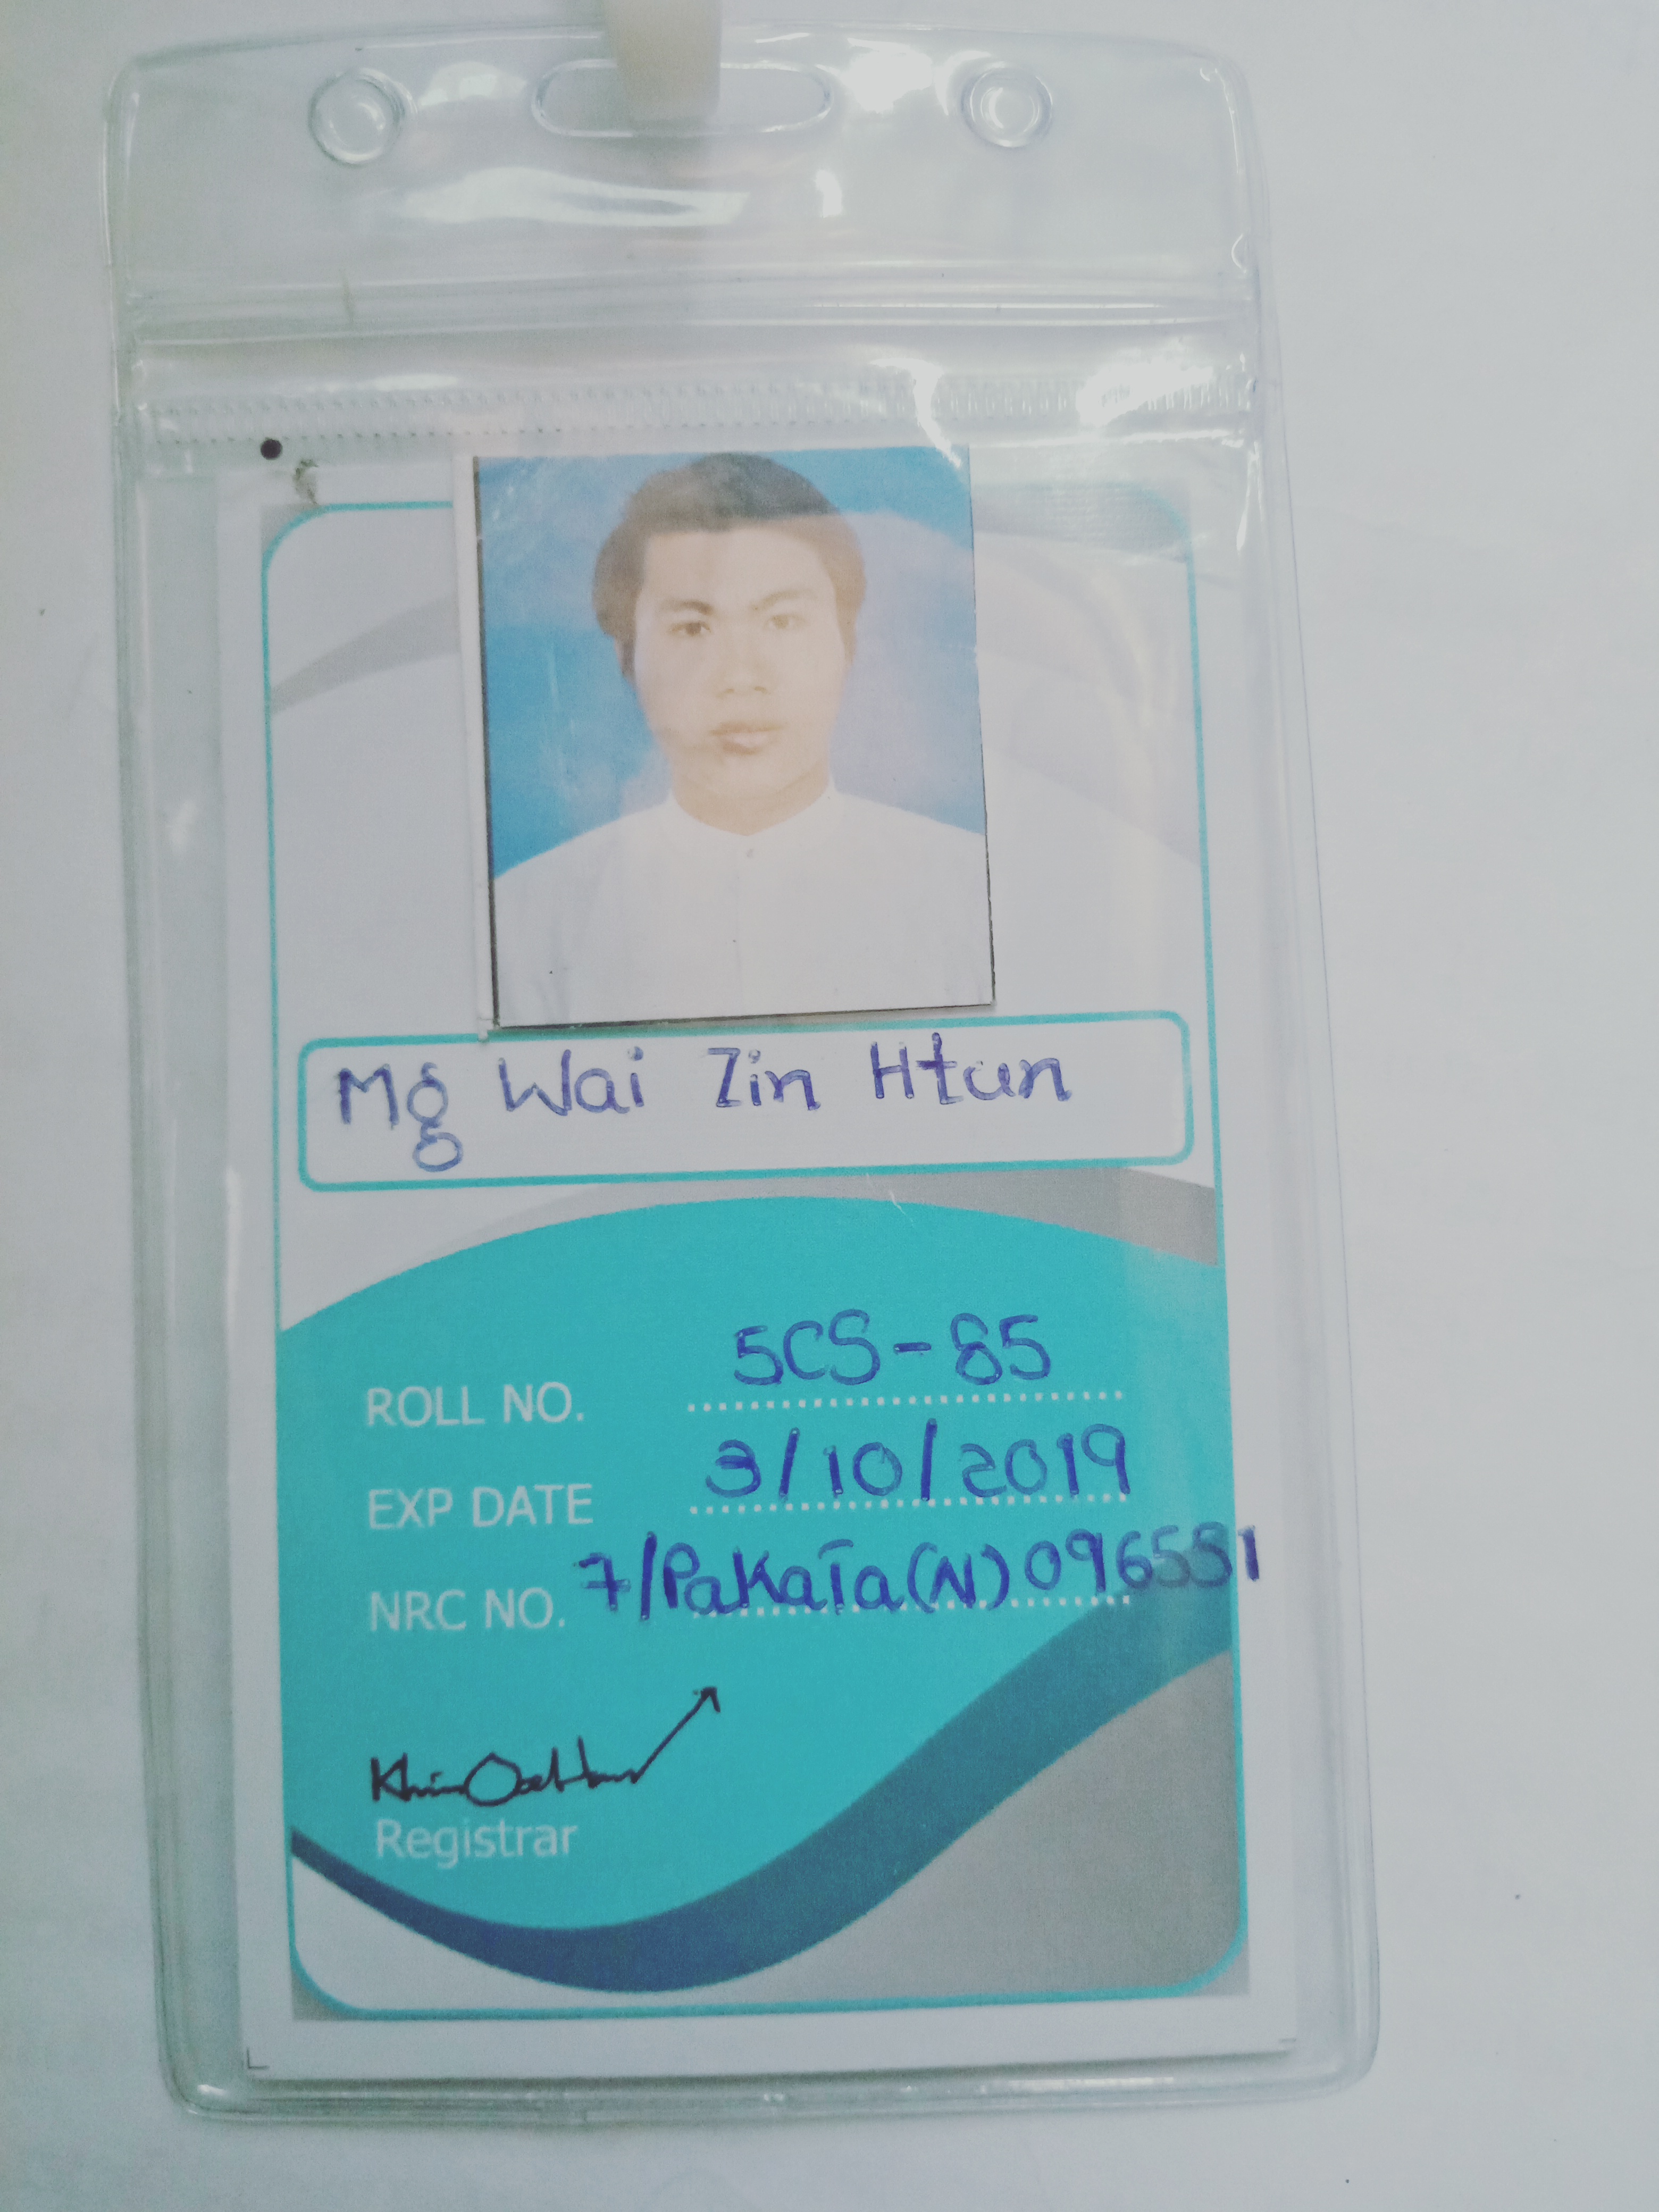 Mg Wai Zin Htun
ROLL NO. 5CS-85
EXP DATE 3/10/2019
NRC NO. 7/PaKaTa(N)096551
Registrar